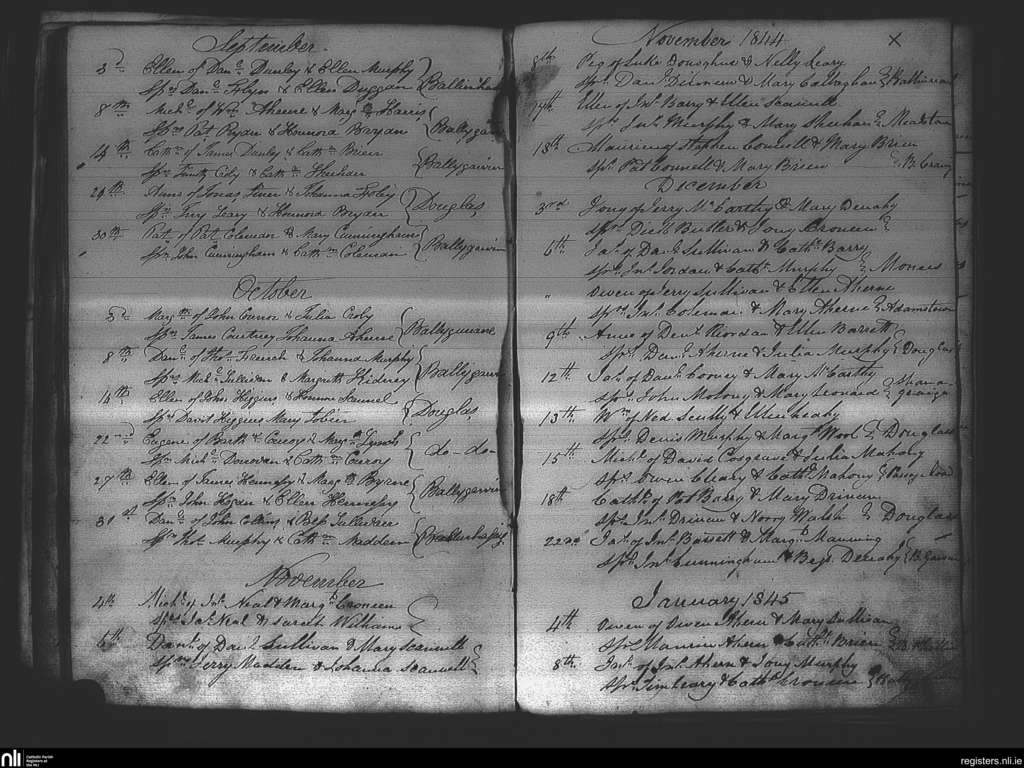 September
3d Ellen of Danl Dunlay & Ellen Murphy
Sprs Danl Flynn & Ellen Duggan
8th Michl of Wm Aherne & Mary Harris
Sprs Pat Ryan & Honnora Bryan
14th Cathne of James Dunlay & Cathne Brien
Sprs & Cathne Sheehan Ballygarvin
29th of & Johanna
Sprs Leary & Honnora Bryan Douglas
30th Patk of Pat Coleman & Mary Cunningham
Sprs John Cunningham & Cathne Coleman Ballygarvin
October
Margt of John Connor & Julia
Sprs James Courtney Johanna Aherne
8th Danl of Thos French & Johanna Murphy
Sprs Michl Sullivan & Margrett Kidney
14th Ellen of John Higgins & Scannel
Sprs David Higgins Mary Tobin Douglas
22nd Eugene of Bartt Conroy & Mary Lynch
Sprs Michl Donovan & Cathne Conroy do-do-
27th Ellen of James Hennessy & Mary Byrne
Sprs John Hogan & Ellen Hennessy Ballygarvin
31st Danl of John Collins & Bess Sullivan
Sprs Thos Murphy & Cathne Madden
November
4th Michl of Jas Neal & Margt Croneen
Sprs Jas Neal & Williams
6th Danl of Danl Sullivan & Mary Scannell
Sprs Jerry Madden & Johanna Scannell
November 1844 X
Peg of Luke Donoghue & Nelly Leary
Sprs Danl & Mary Callaghan
Ellen of Jno Barry & Ellen Scannell
Sprs Jno Murphy & Mary Sheehan
18th Maurice of Stephen Connell & Mary Brien
Sprs Pat Connell & Mary Brien
December
3rd Jony of Jerry McCarthy & Mary Denahy
Sprs Dick Butler & Jony Croneen
6th Jas of Danl Sullivan & Cathe Barry
Sprs Jno Jordan & Cathe Murphy Monees
" Owen of Jerry Sullivan & Ellen Aherne
Sprs Jno Coleman & Mary Aherne Adamstown
9th Anne of Denis Riordan & Ellen Barrett
Sprs Danl Aherne & Julia Murphy Douglas
12th Jas of Danl Cooney & Mary McCarthy
Sprs John Mahony & Mary Leonard
13th Wm of Ned Scully & Ellen Leahy
Sprs Denis Murphy & Margt Wool Douglas
15th Michl of David Cosgrave & Julia Mahony
Sprs Owen Cleary & Cathe Mahony
18th Cathe of Pat Barry & Mary Drinan
Sprs Jno Drinan & Norry Walsh Douglas
22nd Jas of Jno Barrett & Margt Manning
Sprs Jno Cunningham & Bess Denahy
January 1845
4th Owen of Owen Ahern & Mary Sullivan
Sprs Maurice Ahern & Cathe Brien
8th Jas of Jas Ahern & Jony Murphy
Sprs Tim Leary & Cathe Croneen
nli Catholic Parish Registers at the NLI
registers.nli.ie